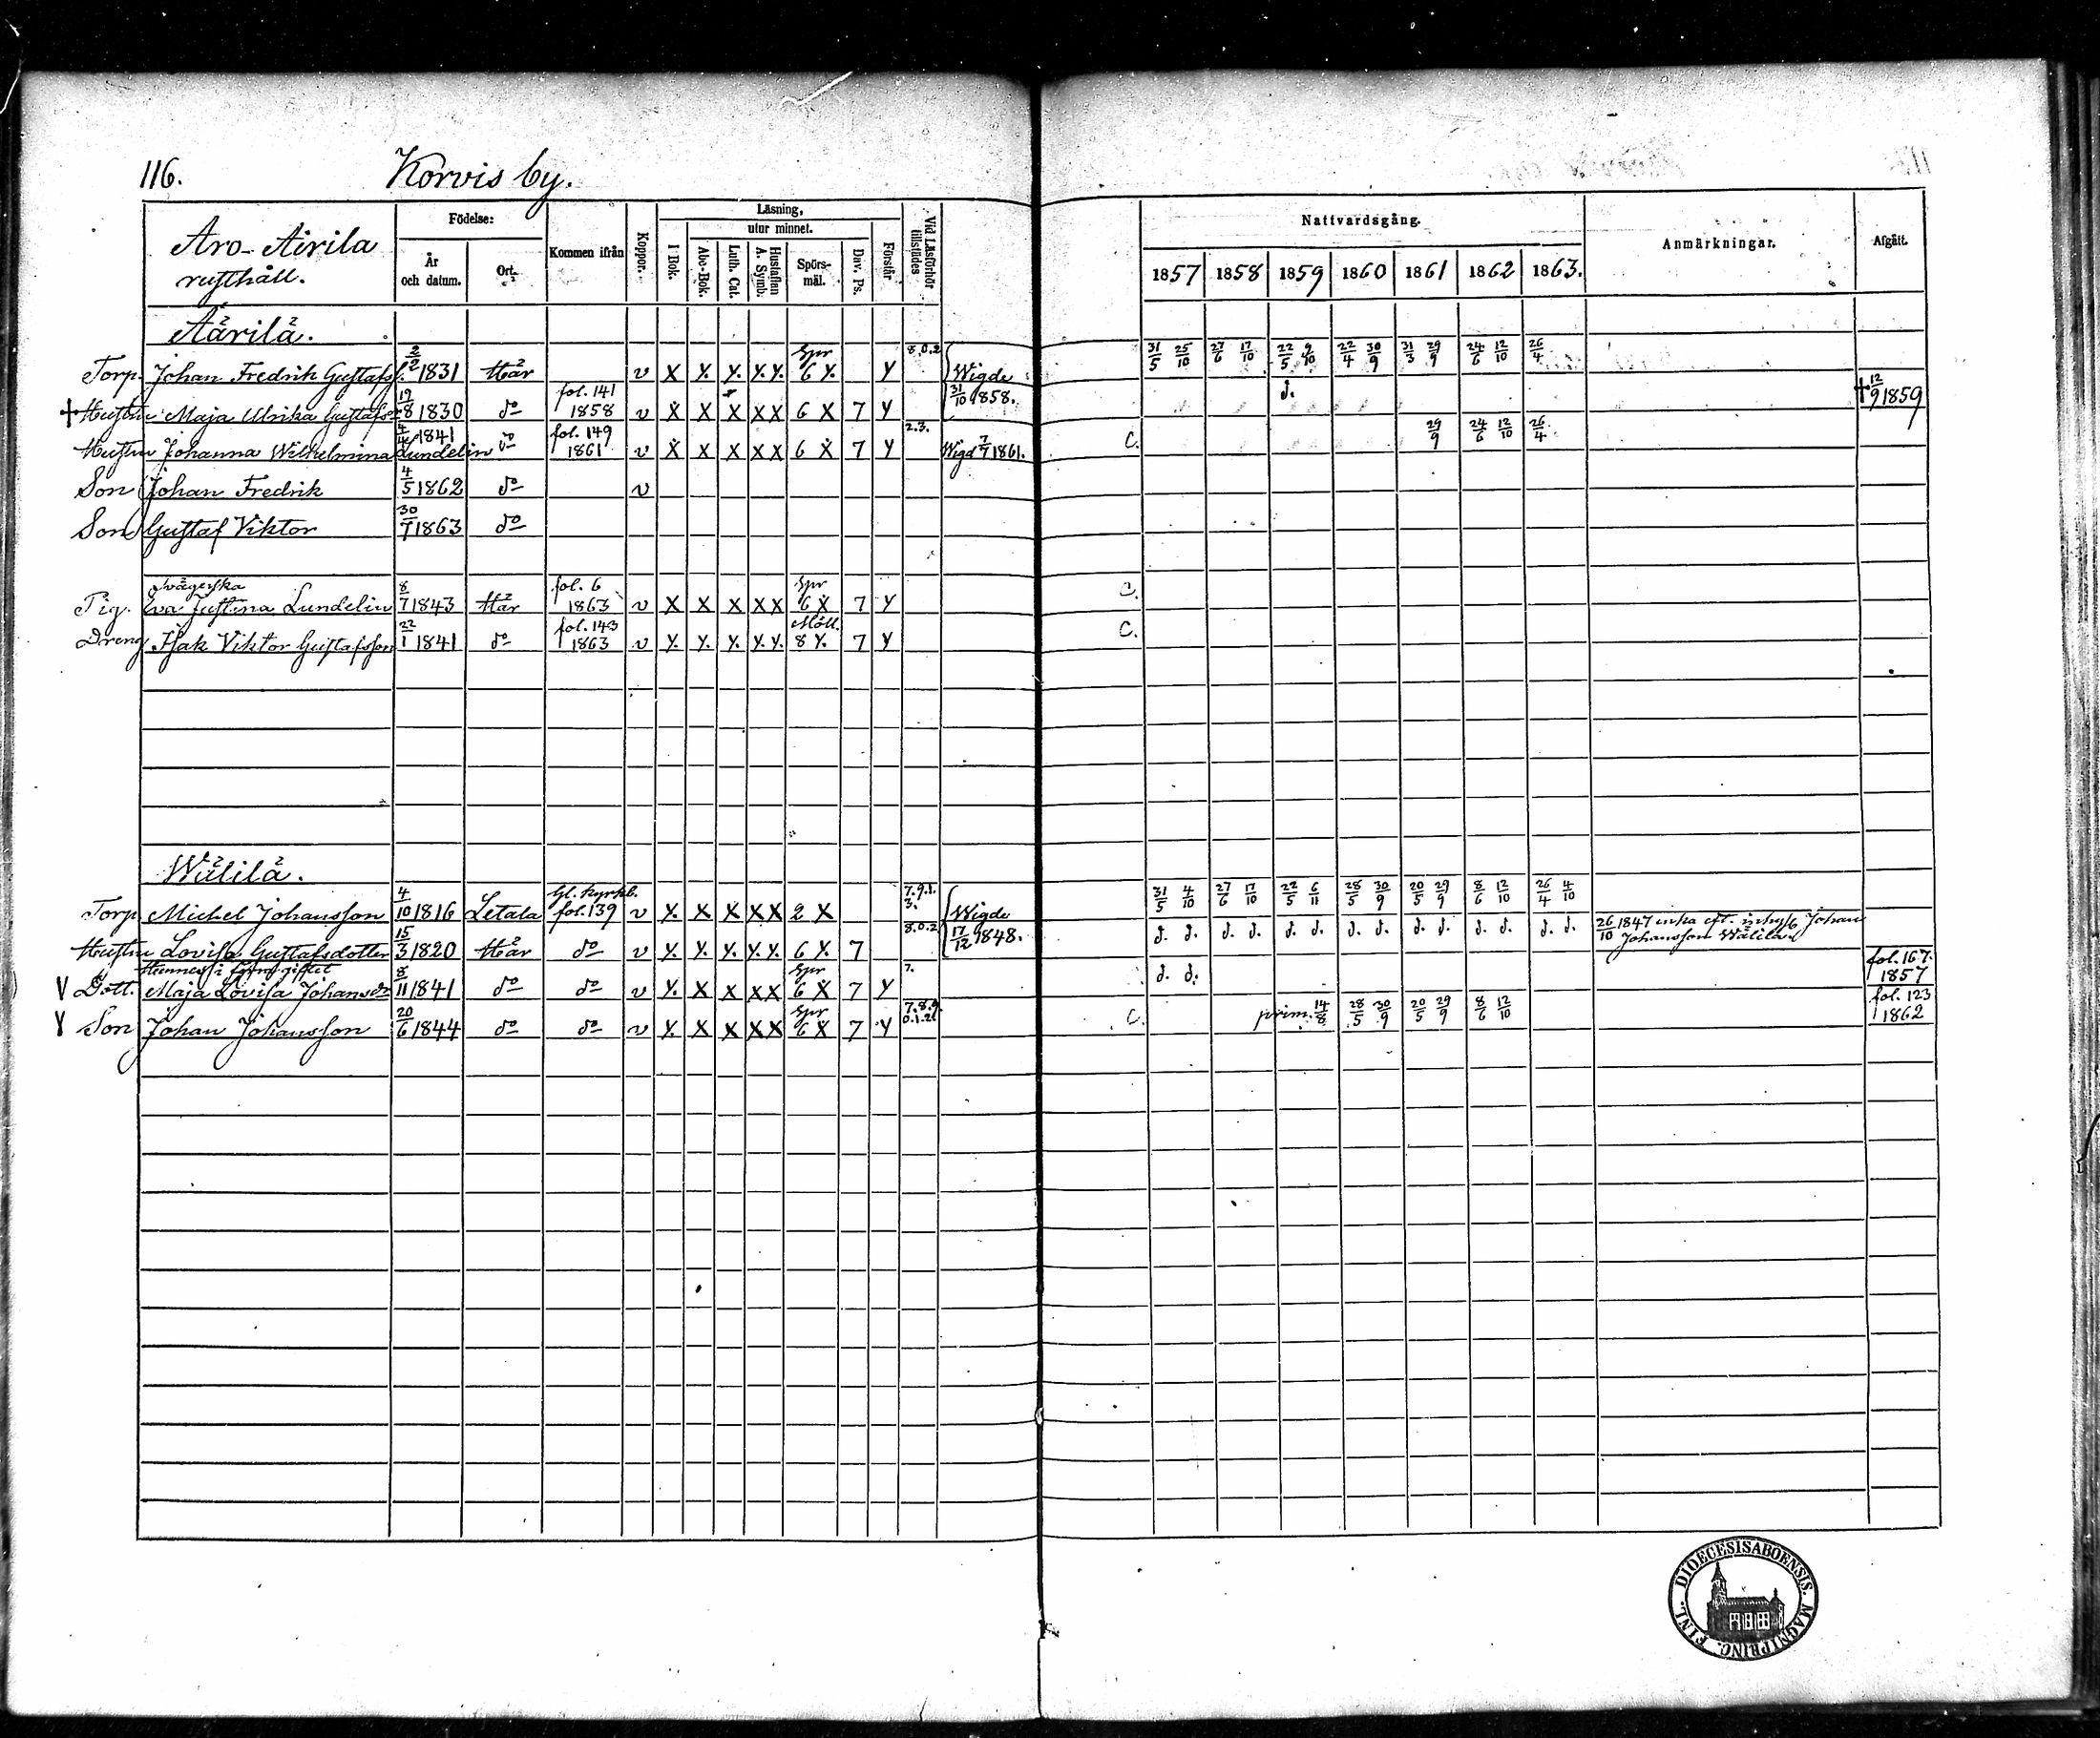 116. Korvis by.
Aro-Airila
rusthåll.
Födelse:
År
och datum.
Ort.
Kommen ifrån
Koppor.
Läsning,
I Bok.
utur minnet.
Abc-Bok.
Luth. Cat.
Hustaflan
A. Symb.
Spörs-
mål.
Dav. Ps.
Förstår
Vid Läsförhör
tillstädes
Nattvardsgång.
1857 1858 1859 1860 1861 1862 1863.
Anmärkningar.
Afgått.
Äärilä.
Torp. Johan Fredrik Gustafss. 2/2 1831 Här v X X. X. X. X. Spr 6 X. Y 8.0.2 Wigde 31/5 25/10 27/6 17/10 22/5 9/10 22/4 30/9 31/3 29/9 24/6 12/10 26/4
+ Hustru Maja Ulrika Gustafsdr 19/8 1830 do fol. 141 1858 v X X X X X 6 X 7 Y 31/10 1858. d. + 12/9 1859
Hustru Johanna Wilhelmina Lundelin 4/4 1841 do fol. 149 1861 v X X X X X 6 X 7 Y 2.3. Wigd 7/7 1861. C. 29/9 24/6 12/10 26/4
Son Johan Fredrik 4/5 1862 do v
Son Gustaf Viktor 30/7 1863 do
Svägerska
Pig. Eva Justina Lundelin 8/7 1843 Här fol. 6 1863 v X X X X X Spr 6 X 7 Y C.
Dreng Isak Viktor Gustafsson 22/1 1841 do fol. 143 1863 v X. X. X. X. X. 8 X. 7 Y C.
Wälilä.
Torp. Michel Johansson 4/10 1816 Letala Gl. kyrkb. fol. 139 v X. X X X X 2 X 7.9.1. 3. Wigde 31/5 4/10 27/6 17/10 22/5 6/11 28/5 30/9 20/5 29/9 8/6 12/10 26/4 4/10
Hustru Lovisa Gustafsdotter 15/3 1820 Här do v X. X. X. X. X. 6 X. 7 8.0.2 17/12 1848. d. d. d. d. d. d. d. d. d. d. d. d. d. d. 26/10 1847 enka eft. inhys. Johan
Johansson Wälilä.
Hennes i förra giftet
V Dott. Maja Lovisa Johansdr 8/11 1841 do do v X. X X X X Spr 6 X 7 Y 7. d. d. fol. 167. 1857
Y Son Johan Johansson 20/6 1844 do do v X. X X X X Spr 6 X 7 Y 7.8.9. 0.1.2. C. prim. 14/8 28/5 30/9 20/5 29/9 8/6 12/10 fol. 123 1862
DIOECESIS ABOENSIS. MAGNI PRINC. FINL.